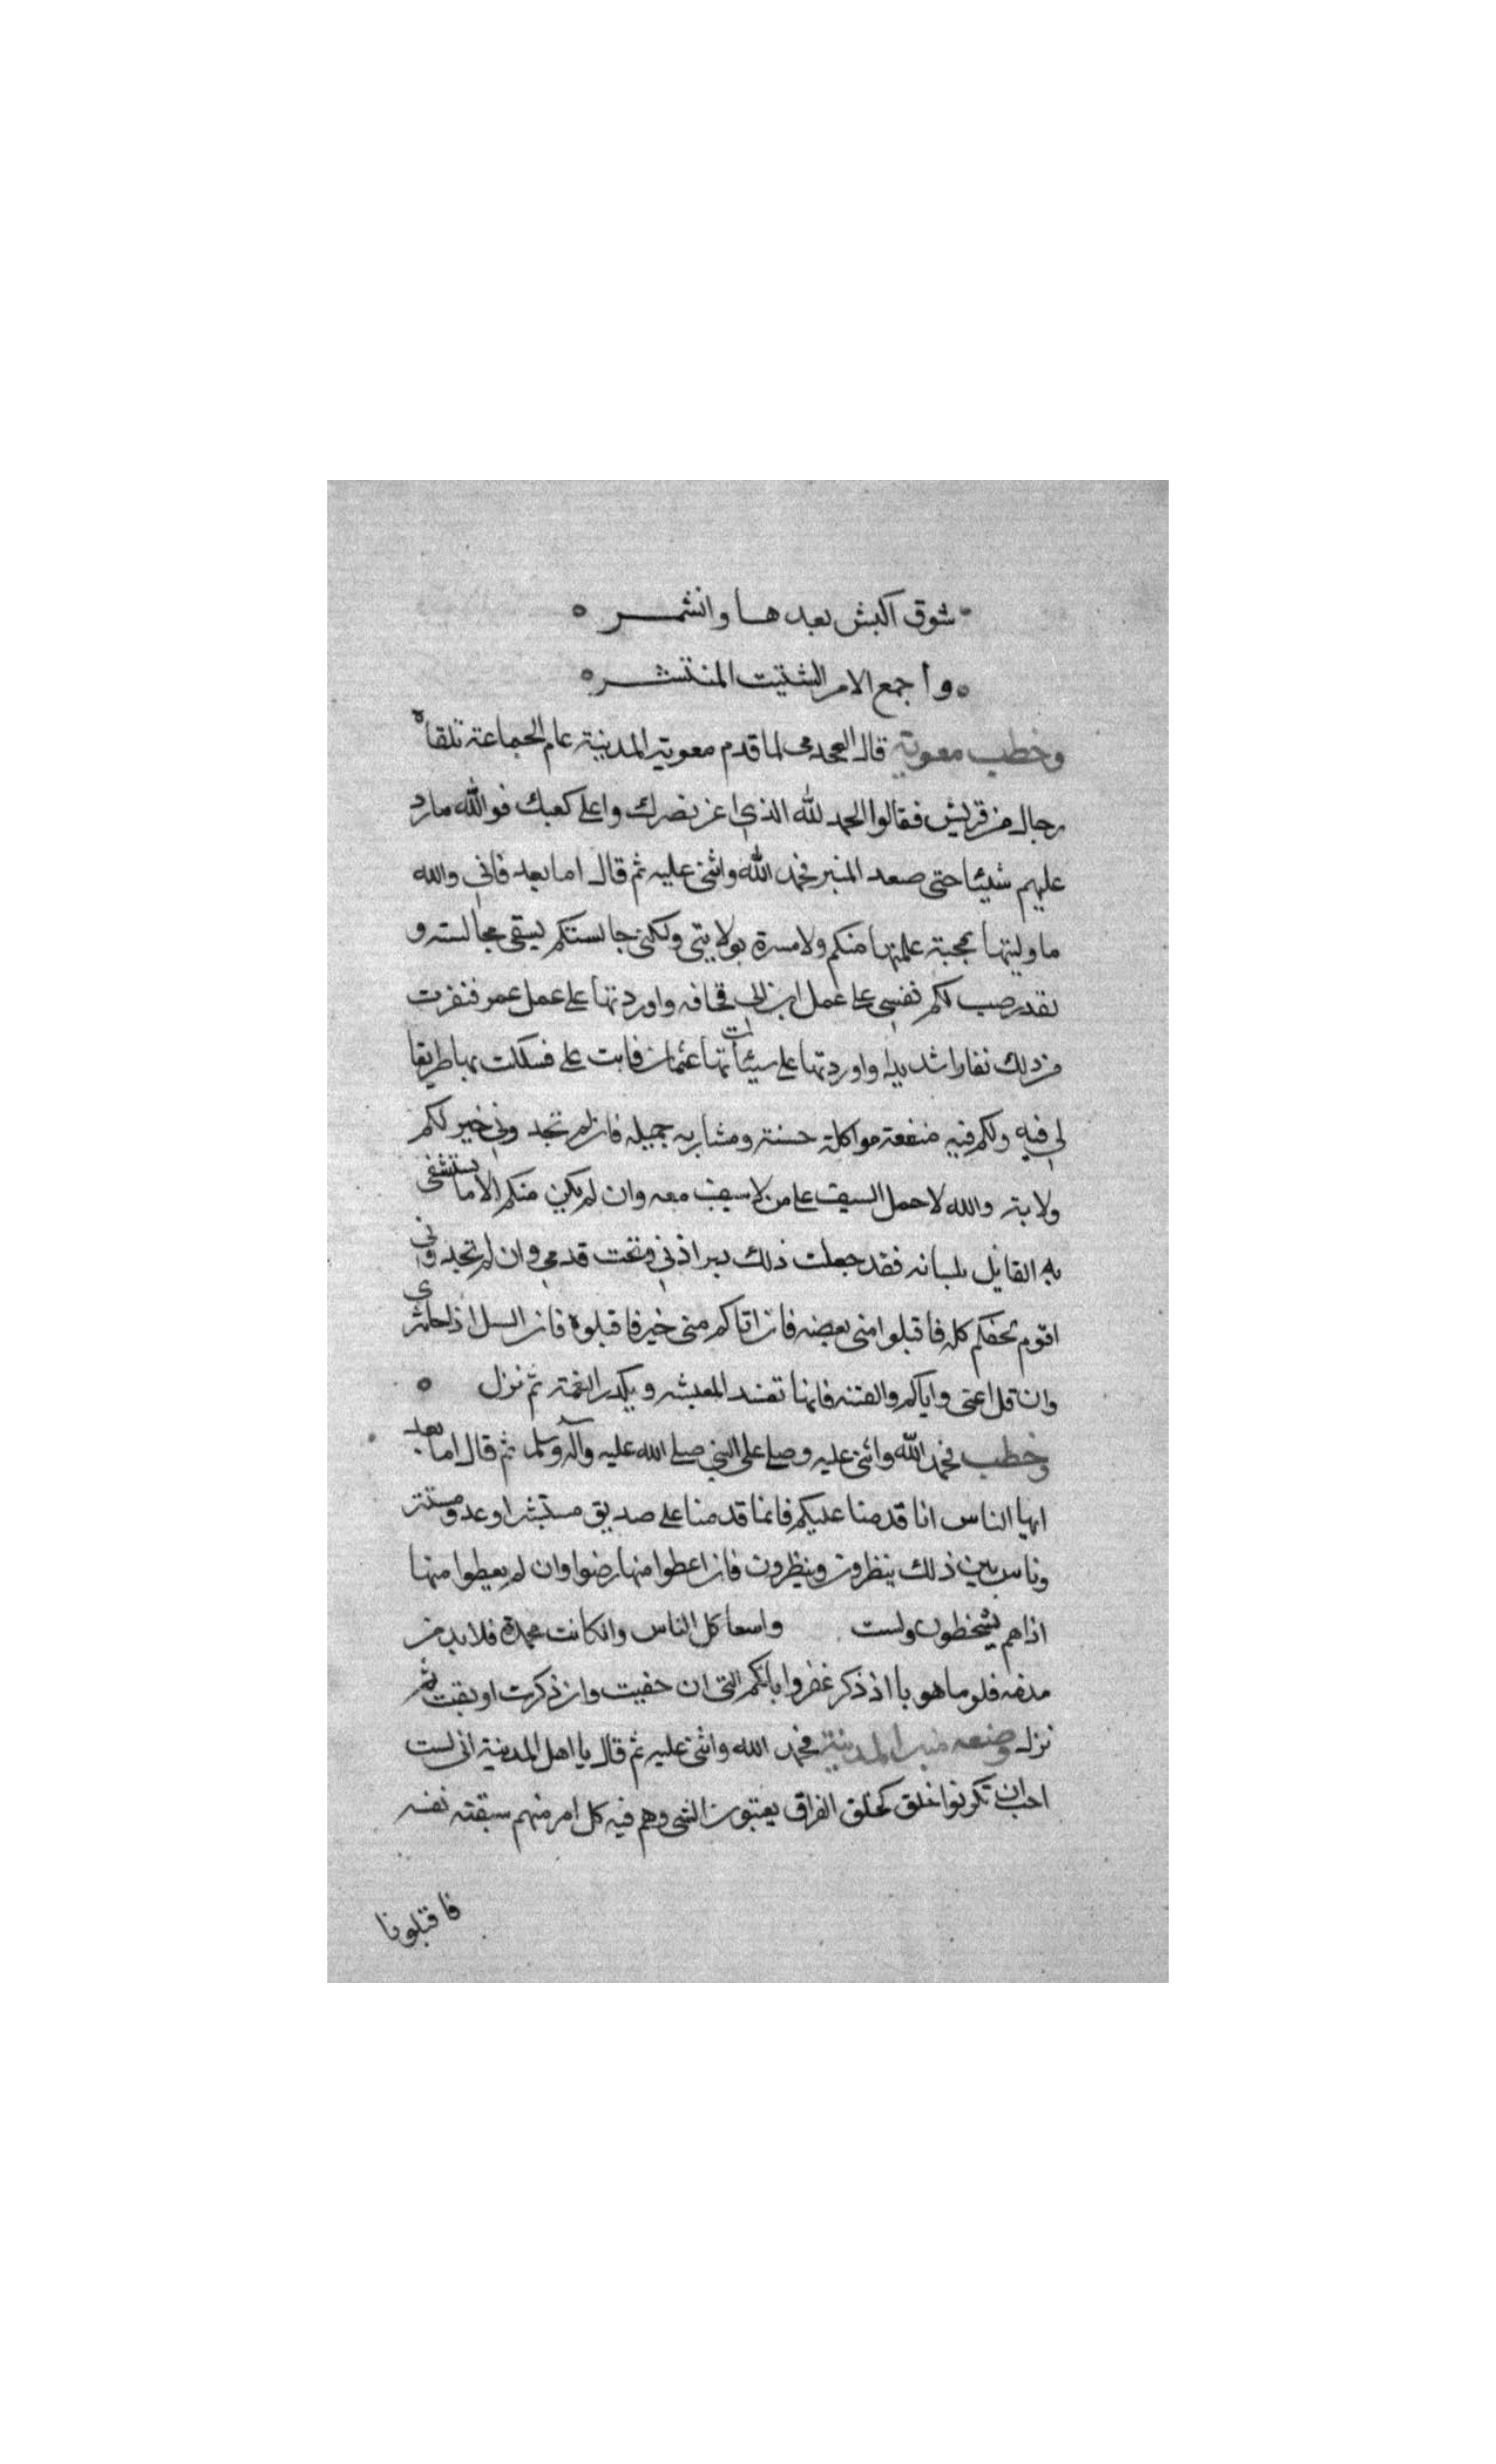 شوق اكبش بعدها وانشمر
واجمع الامر الشتيت المنتشر
وخطب معوية قال العجدمى لما قدم معوية المدينة عام الجماعة تلقاه
رجال من قريش فقالوا الحمد لله الذي اعز نصرك واعلى كعبك فوالله مارد
عليهم شيئا حتى صعد المنبر فحمد الله واثنى عليه ثم قال اما بعد فاني والله
ما وليتها بمحبة علمتها منكم ولا مسرة بولايتى ولكنى جالستكم بسيقى مجالسته و
نقد رصب لكم نفسي على عمل ابن ابي قحافه واوردتها على عمل عمر فنفرت
من ذلك نفارا شديدا واوردتها على سيئاتها عثمان فابت على فسكلت بها طريقا
لي فيه ولكم فيه منفعة مواكلة حسنة ومشاربه جميله فان لم تجد وني خير لكم
ولاية والله لاحمل السيف على من لا سيف معه وان لم يكن منكم الا ما يستشفى
به القايل بلسانه فقد جعلت ذلك دبر اذني وتحت قدمي وان لم تجد وني
اقوم بحقكم كله فاقبلوا منى بعضه فان اتاكم منى خير فاقبلوه فان السل اذا جا يثرى
وان قل اعتى واياكم والفتنه فانها تفسد المعيشه ويكدر النعمة ثم نزل
وخطب فحمد الله واثنى عليه وصلى على النبي صلى الله عليه وآله وسلم ثم قال اما بعد
ايها الناس انا قدمنا عليكم فانما قدمنا على صديق مستبشر او عدو مستتر
وناس بين ذلك ينظرون وينظرون فان اعطوا منها رضوا وان لم يعطوا منها
اذا هم يسخطون ولست واسعا كل الناس وانكانت محمدة فلابد من
مذمه فلوما هو با اذ ذكر غفروا باكم التى ان خفيت وان ذكرت اوبقت ثم
نزل وصعد منبر المدينة فحمد الله واثنى عليه ثم قال يا اهل المدينة انى لست
احب ان تكونوا خلق كخلق العراق يعتبون الشى وهم فيه كل امر منهم سبقته نفسه
فاقبلونا